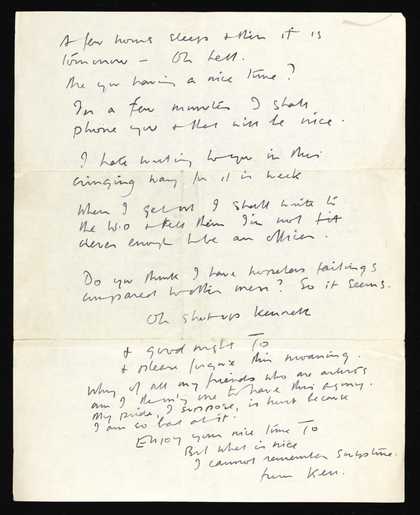 A few hours sleep & then it is
tomorrow – Oh hell.
Are you having a nice time?
In a few minutes I shall
phone you & that will be nice.
I hate writing to you in this
cringing way for it is weak
When I get out I shall write to
the W.O & tell them I'm not fit
clever enough to be an officer.
Do you think I have hopeless failings
compared to other men? So it seems.
Oh shut up Kenneth
& good night To
& please forgive this moaning.
Why of all my friends who are artists
am I the only one to have this agony.
My pride, I suppose, is hurt because
I am so bad at it.
Enjoy your nice time To
But what is nice
I cannot remember
from Ken.